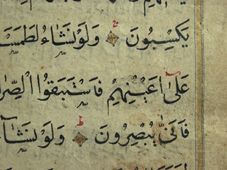 يَكْسِبُونَ ۝ وَلَوْ نَشَاءُ لَطَمَسْ
عَلَىٰ أَعْيُنِهِمْ فَاسْتَبَقُوا الصِّرَا
فَأَنَّىٰ يُبْصِرُونَ ۝ وَلَوْ نَشَاءُ